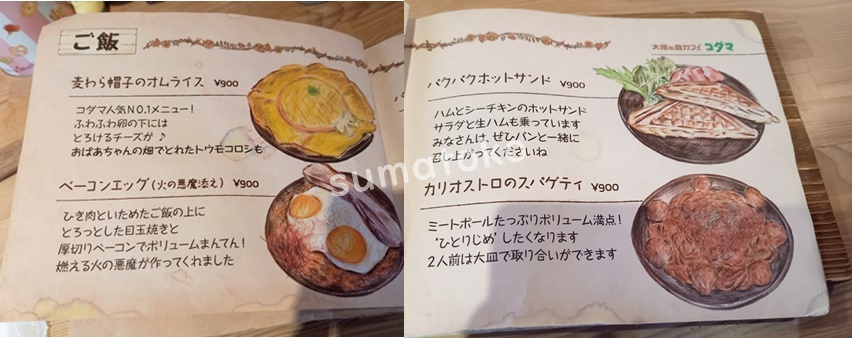 ご飯
麦わら帽子のオムライス ¥900
コダマ人気NO.1メニュー!
ふわふわ卵の下には
とろけるチーズが♪
おばあちゃんの畑でとれたトウモコロシも
ベーコンエッグ(火の悪魔添え) ¥900
ひき肉といためたご飯の上に
とろっとした目玉焼きと
厚切りベーコンでボリュームまんてん!
燃える火の悪魔が作ってくれました
大阪の森カフェ コダマ
パクパクホットサンド ¥900
ハムとシーチキンのホットサンド
サラダと生ハムも乗っています
みなさんは、ぜひパンと一緒に
召し上がってくださいね
カリオストロのスパゲティ ¥900
ミートボールたっぷりボリューム満点!
'ひとりじめ'したくなります
2人前は大皿で取り合いができます
sumatoka